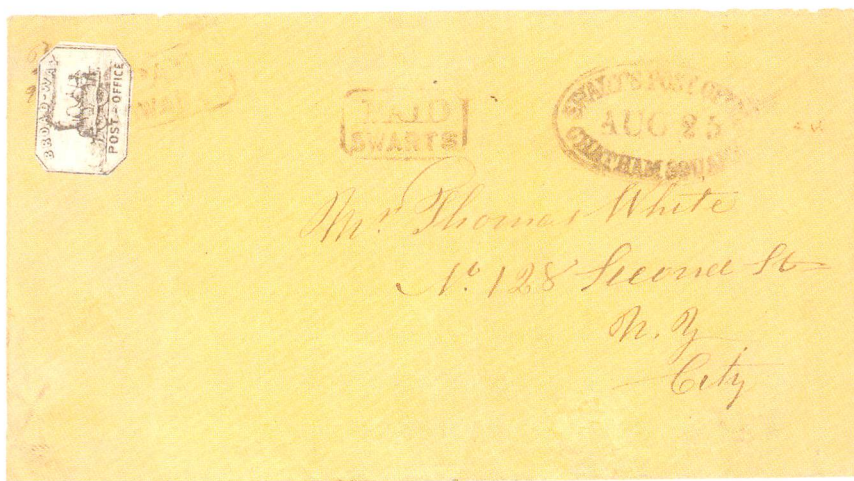 BROAD-WAY
POST-OFFICE
PAID
SWARTS
SWARTS POST OFFICE
AUG 25
CHATHAM SQUARE
Mr. Thomas White
No. 128 Second St
N. Y
City